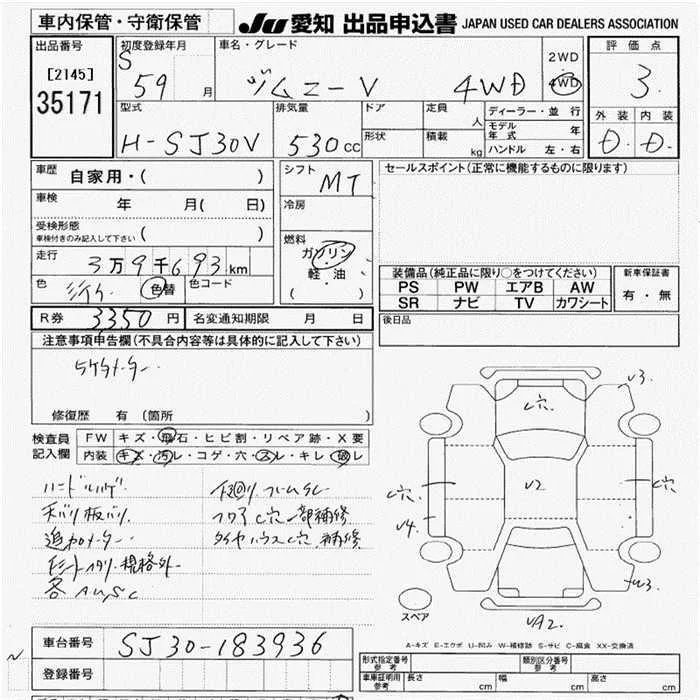 車内保管・守衛保管 JU 愛知 出品申込書 JAPAN USED CAR DEALERS ASSOCIATION
出品番号 初度登録年月 車名・グレード 2WD 評価点
[2145] S 59 月 ジムニーV 4WD 4WD 3.
35171 型式 排気量 ドア 定員 人 ディーラー・並行 外装 内装
H-SJ30V 530cc 形状 積載 kg モデル年式 年 D. D.
ハンドル 左・右
車歴 自家用・( ) シフト MT セールスポイント(正常に機能するものに限ります)
車検 年 月( 日) 冷房
受検形態 ( )
車検付きのみ記入して下さい
燃料
走行 3万9千693km ガソリン
軽・油
( )
装備品(純正品に限り○をつけてください) 新車保証書
色 色替 色コード PS PW エアB AW 有・無
SR ナビ TV カワシート
R券 3350円 名変通知期限 月 日 後日品
注意事項申告欄(不具合内容等は具体的に記入して下さい)
5ケタメーター
修復歴 有(箇所 )
検査員 FW キズ・飛石・ヒビ割・リペア跡・X要
記入欄 内装 キズ・汚レ・コゲ・穴・スレ・キレ・破レ
ハンドルハゲ
天バリ板バリ
追加メーター
規格外
フロアC穴一部補修
タイヤハウスC穴 補修
V3.
C穴.
C穴.
V2
C穴.
V4.
V3
VA2.
スペア
A-キズ E-エクボ U-凹み W-補修跡 S-サビ C-腐食 XX-交換済
車台番号 SJ30-183936
登録番号
形式指定番号 参考 類別区分番号 参考
車庫証明用 参考 長さ cm 幅 cm 高さ cm